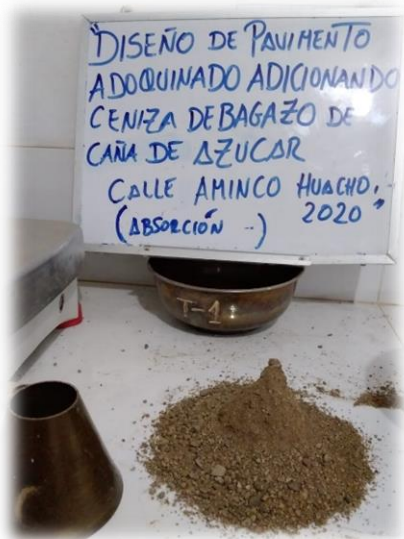 "DISEÑO DE PAVIMENTO
ADOQUINADO ADICIONANDO
CENIZA DE BAGAZO DE
CAÑA DE AZUCAR
CALLE AMINCO HUACHO,
2020"
(ABSORCIÓN -)
T-1